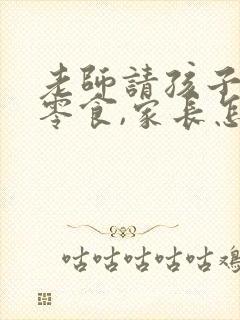 老師請孩子
零食,家長怎
咕咕咕咕咕雞